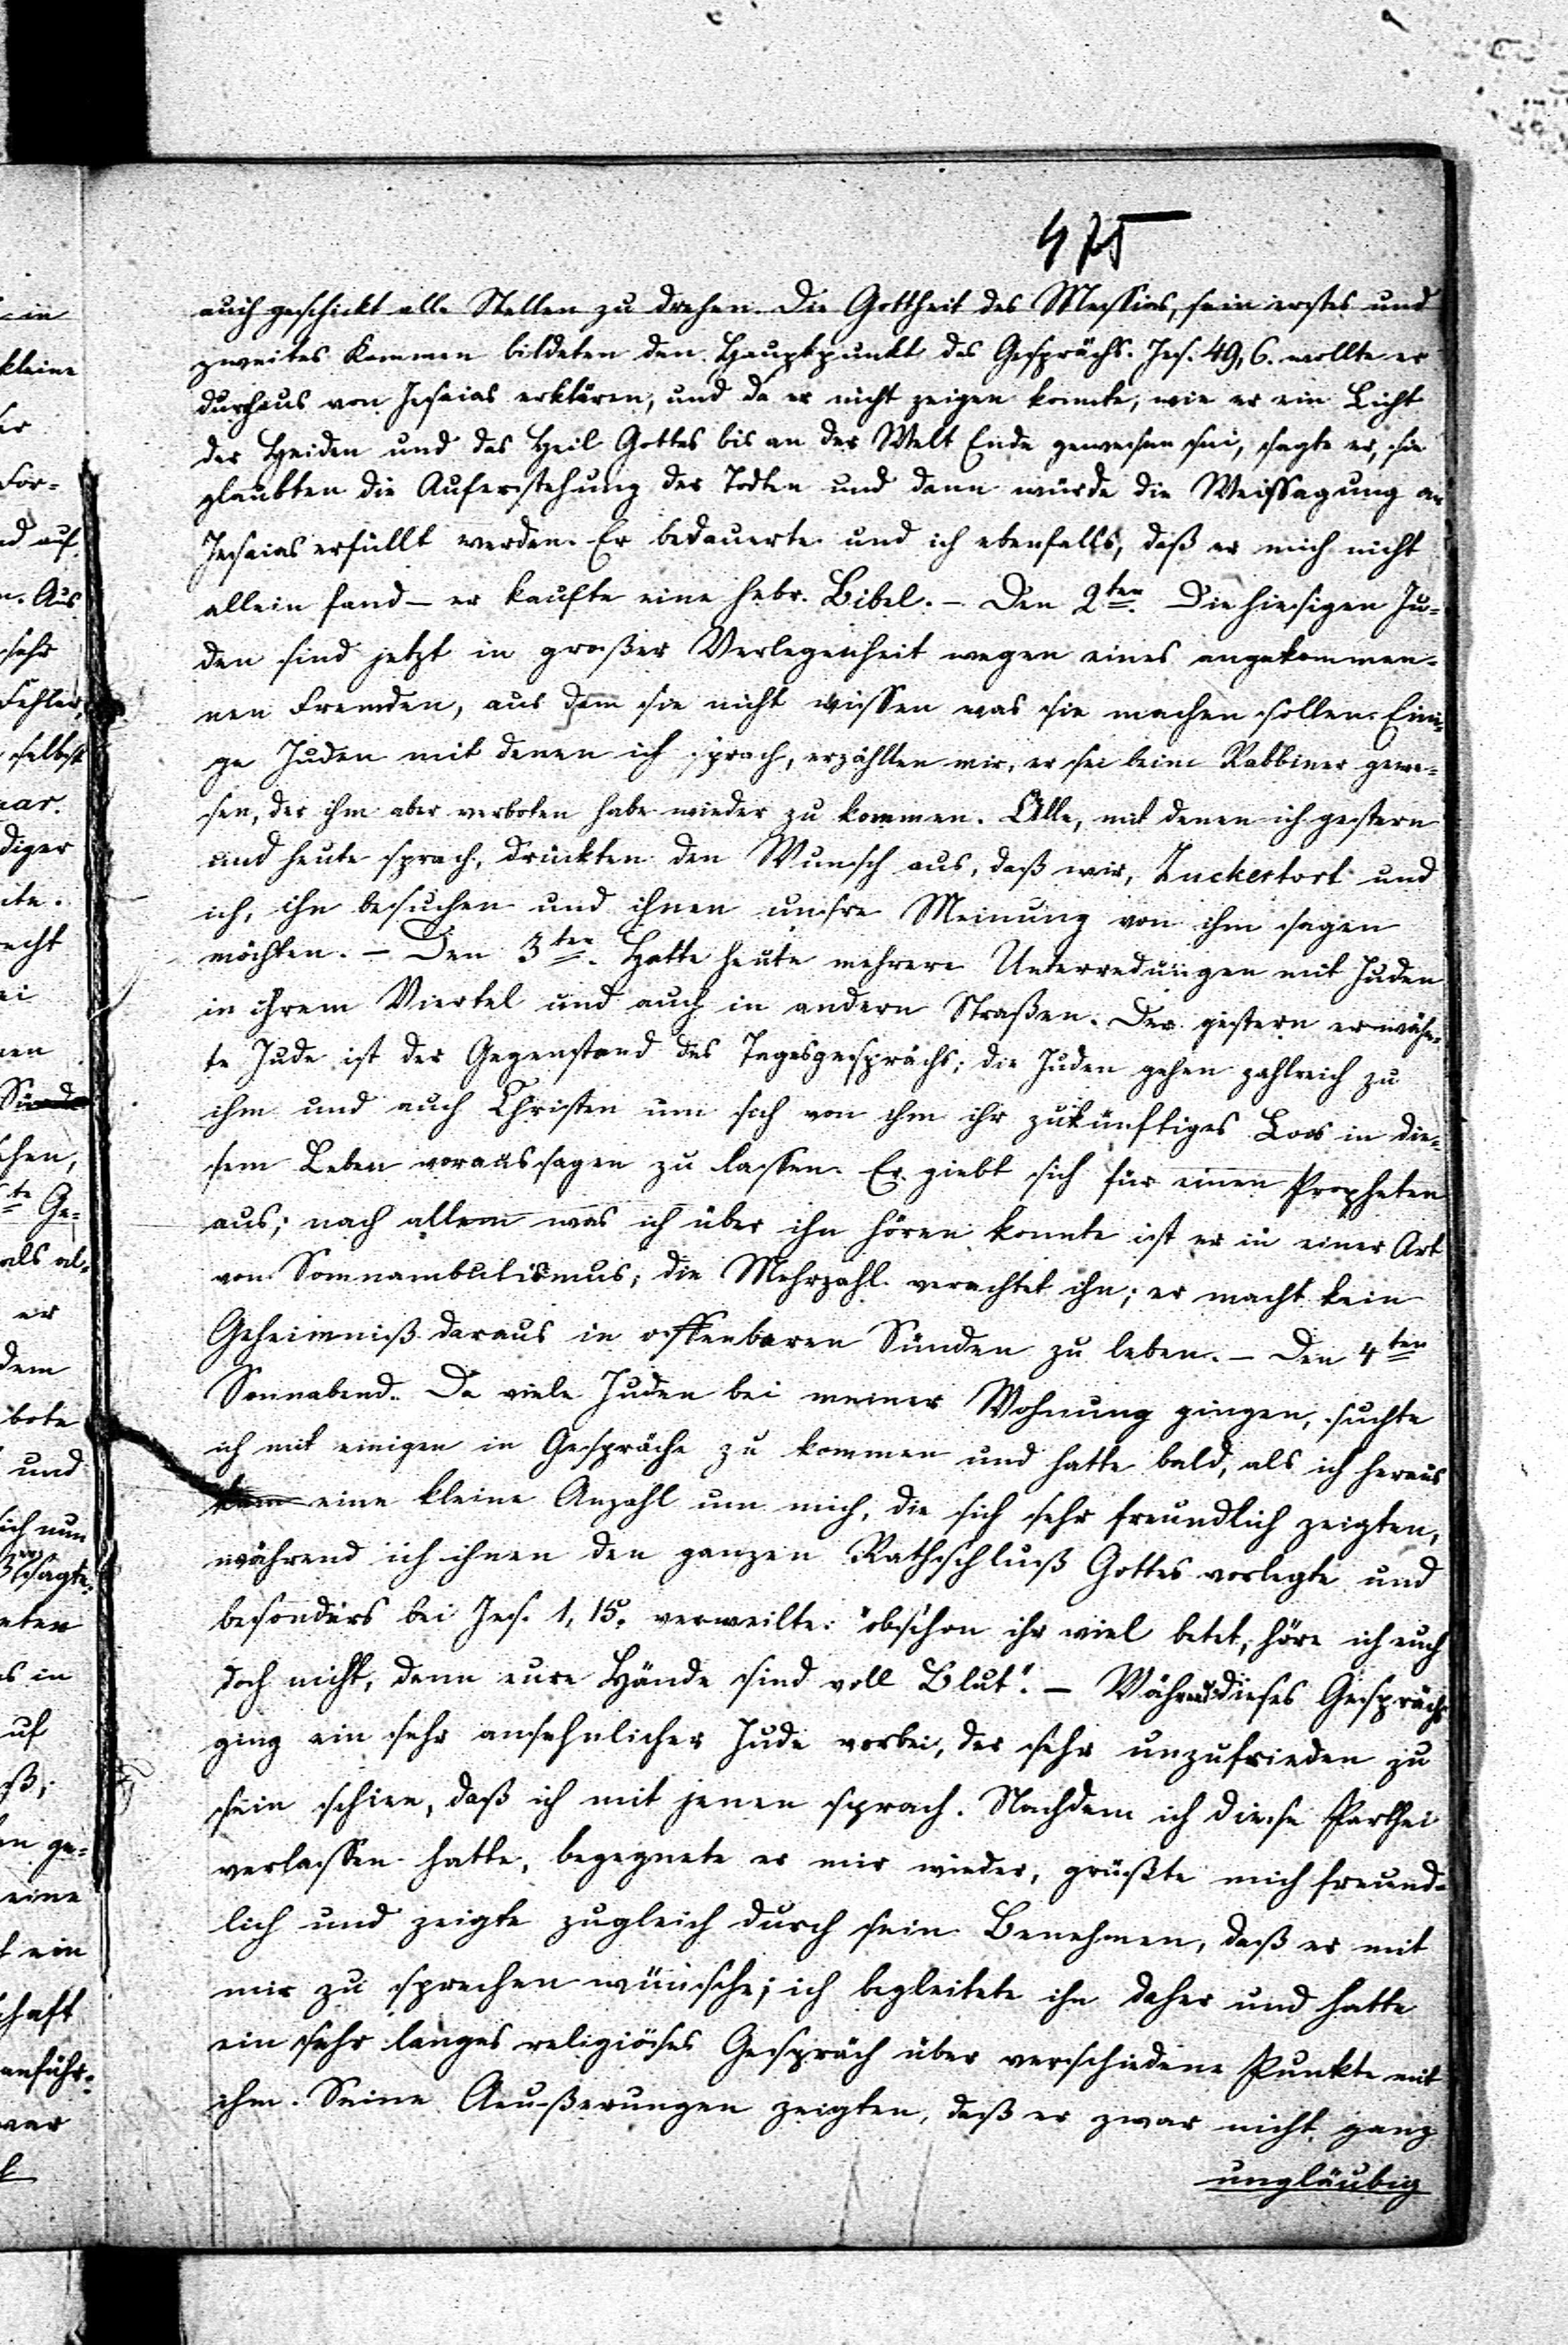 475
auch geschickt alle Stellen zu drehen. Die Gottheit des Messias, sein erstes und
zweites Kommen bildeten den Hauptpunkt des Gesprächs. Jes. 49,6. wollte er
durchaus von Jesaias erklären, und da er nicht zeigen konnte, wie er ein Licht
der Heiden und das Heil Gottes bis an der Welt Ende gewesen sei, sagte er, sie
glaubten die Auferstehung der Todten und dann würde die Weissagung an
Jesaias erfüllt werden. Er bedauerte und ich ebenfalls, daß er mich nicht
allein fand – er kaufte eine hebr. Bibel. – Den 2ten. Die hiesigen Ju-
den sind jetzt in großer Verlegenheit wegen eines angekommen-
nen Fremden, aus dem sie nicht wissen was sie machen sollen. Eini-
ge Juden mit denen ich sprach, erzählten mir, er sei beim Rabbiner gewe-
sen, der ihm aber verboten habe wieder zu kommen. Alle, mit denen ich gestern
und heute sprach, drückten den Wunsch aus, daß wir, Zuckertort und
ich, ihn besuchen und ihnen unsre Meinung von ihm sagen
möchten. – Den 3ten. Hatte heute mehrere Unterredungen mit Juden
in ihrem Viertel und auch in andern Straßen. Der gestern erwähn-
te Jude ist der Gegenstand des Tagesgesprächs; die Juden gehen zahlreich zu
ihm und auch Christen um sich von ihm ihr zukünftiges Loos in die-
sem Leben voraussagen zu lassen. Er giebt sich für einen Propheten
aus; nach allem was ich über ihn hören konnte ist er in einer Art
von Somnambulismus; die Mehrzahl verachtet ihn; er macht kein
Geheimniß daraus in offenbaren Sünden zu leben. – Den 4ten
Sonnabend. Da viele Juden bei meiner Wohnung gingen, suchte
ich mit einigen in Gespräche zu kommen und hatte bald, als ich heraus
kam eine kleine Anzahl um mich, die sich sehr freundlich zeigten,
während ich ihnen den ganzen Rathschluß Gottes vorlegte und
besonders bei Jes. 1, 15. verweilte: "obschon ihr viel betet, höre ich euch
doch nicht, denn eure Hände sind voll Blut". – Während dieses Gesprächs
ging ein sehr ansehnlicher Jude vorbei, der sehr unzufrieden zu
sein schien, daß ich mit jenen sprach. Nachdem ich diese Parthei
verlassen hatte, begegnete er mir wieder, grüßte mich freund-
lich und zeigte zugleich durch sein Benehmen, daß er mit
mir zu sprechen wünsche; ich begleitete ihn daher und hatte
ein sehr langes religiöses Gespräch über verschiedene Punkte mit
ihm. Seine Aeußerungen zeigten, daß er zwar nicht ganz
ungläubig